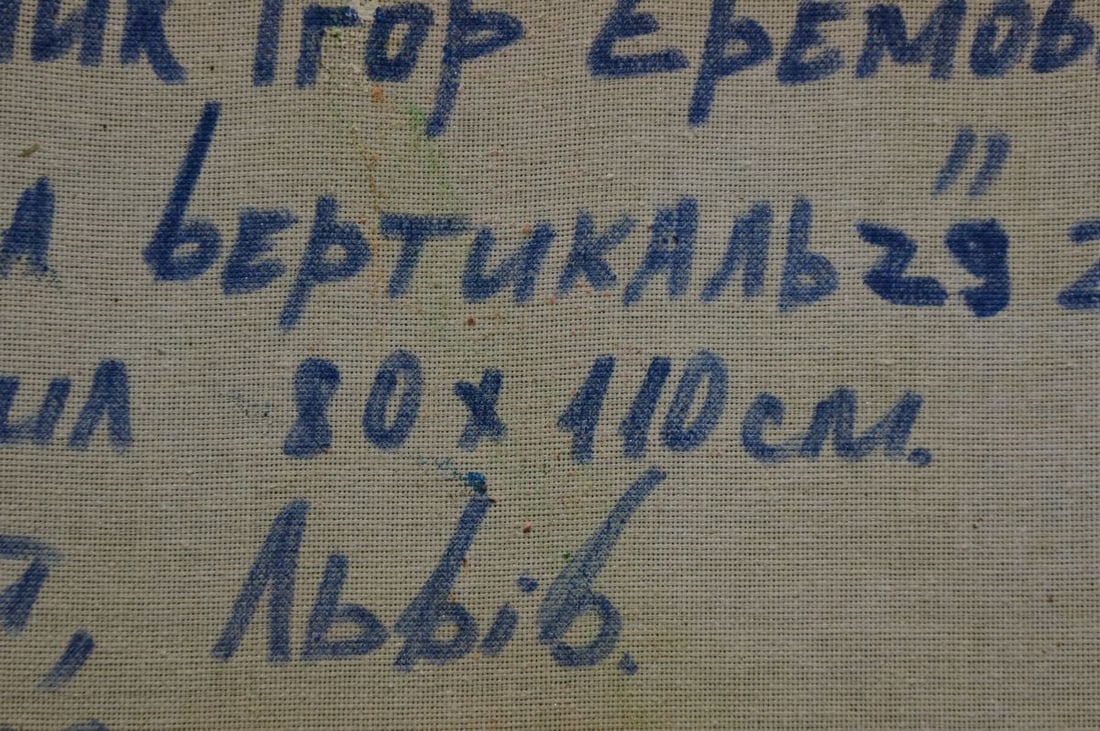 ник Ігор Єремов
а вертикаль 29" 2
ил 80 x 110 см.
, Львів.